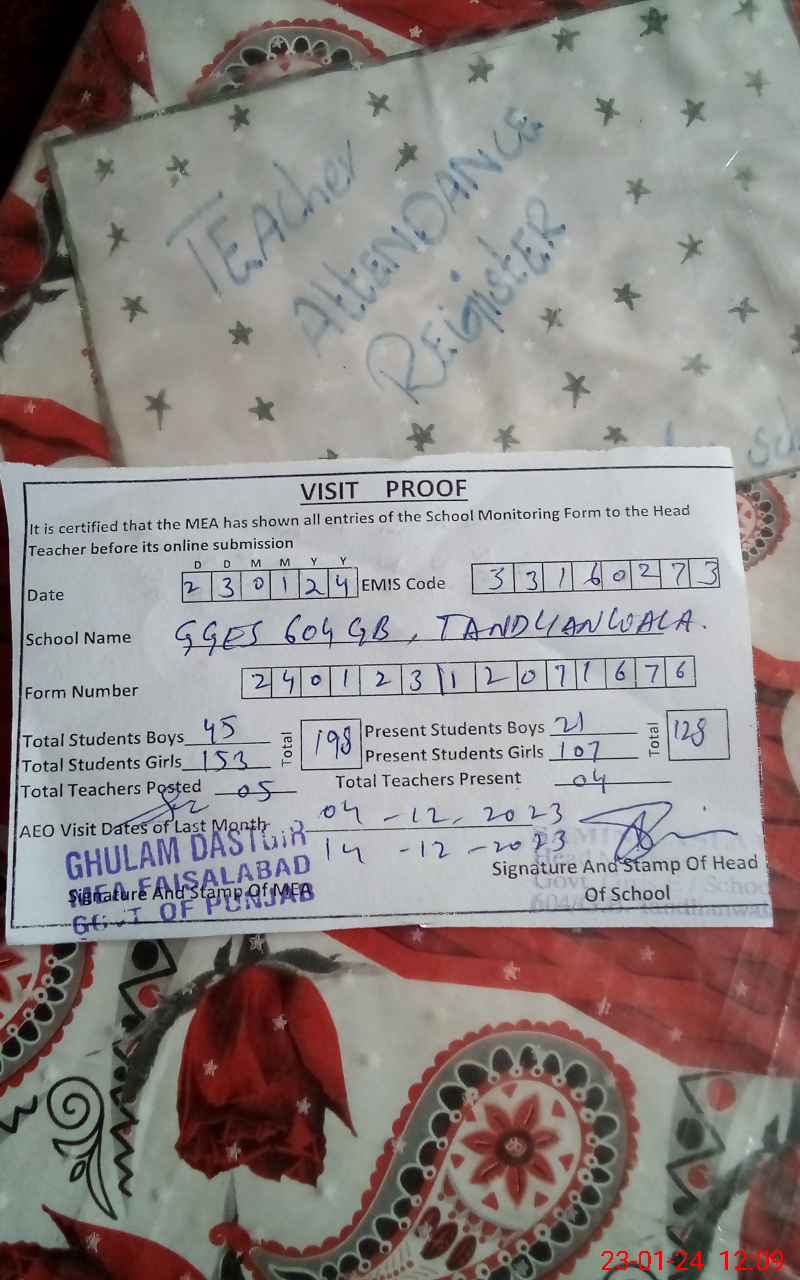 TEAcher
AttENDANCE
REigisteR
Sch
VISIT PROOF
It is certified that the MEA has shown all entries of the School Monitoring Form to the Head
Teacher before its online submission
D D M M Y Y
Date 230124 EMIS Code 33160273
School Name GGES 604 GB, TANDLIANWALA.
Form Number 240123120711676
Total Students Boys 45 Total 198 Present Students Boys 21 Total 128
Total Students Girls 153 Present Students Girls 107
Total Teachers Posted 05 Total Teachers Present 04
AEO Visit Dates of Last Month 04-12, 2023
14-12-2023
GHULAM DASTGIR
MEA FAISALABAD
GOVT OF PUNJAB
Signature And Stamp Of MEA
Signature And Stamp Of Head
Of School
23-01-24 12:09